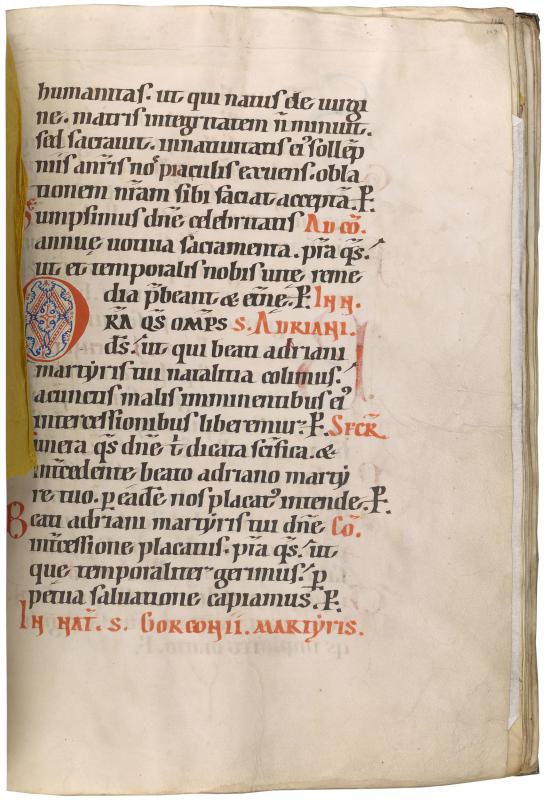 humanitas. ut qui natus de uirgi
ne. matris integritatem n̄ minuit.
sed sacrauit. in natiuitatis ei᷒ sollēp
niis a nr̄is nos piaculis exuens. obla
tionem nr̄am sibi faciat acceptā. P.
Sumpsimus dn̄e celebritatis AD CŌ.
annue uotiua sacramenta. p̄ta q̄s.
ut et temporalis nobis uite reme
dia p̄beant & et̄ne. P. IN N.
PRA QS OMPS S. ADRIANI.
ds̄. ut qui beati adriani
martyris tui natalitia colimus.
a cunctis malis imminentibus ei᷒
intercessionibus liberemur. P. SECR̄
Munera q̄s dn̄e t̄ dicata sc̄ifica. &
int̄cedente beato adriano marty
re tuo. p̱ eadē nos placat᷒ intende. P.
Beati adriani martyris tui dn̄e CŌ.
int̄cessione placatus. p̄ta q̄s. ut
que temporaliter gerimus. p̱
petua saluatione capiamus. P.
IN NAT̄. S. GORGONII. MARTYRIS.